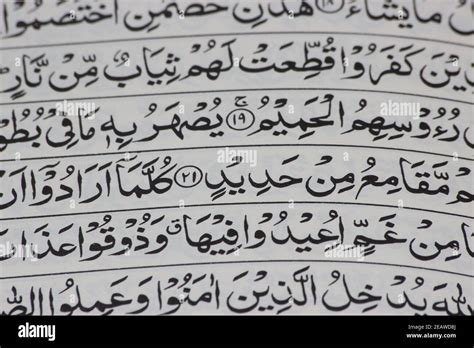 مَا يَشَآءُ ۝١٨ هٰذٰنِ خَصْمٰنِ اخْتَصَمُوْا
كَفَرُوْا قُطِّعَتْ لَهُمْ ثِيَابٌ مِّنْ نَّارٍ
رُءُوْسِهِمُ الْحَمِيْمُ ۚ‏۝١٩ يُصْهَرُ بِهٖ مَا فِيْ
مَّقَامِعُ مِنْ حَدِيْدٍ ۝٢١ كُلَّمَآ اَرَادُوْٓا اَنْ
مِنْ غَمٍّ اُعِيْدُوْا فِيْهَا وَذُوْقُوْا
يُدْخِلُ الَّذِيْنَ اٰمَنُوْا وَعَمِلُوا
alamy
Image ID: 2EAWDBJ
www.alamy.com